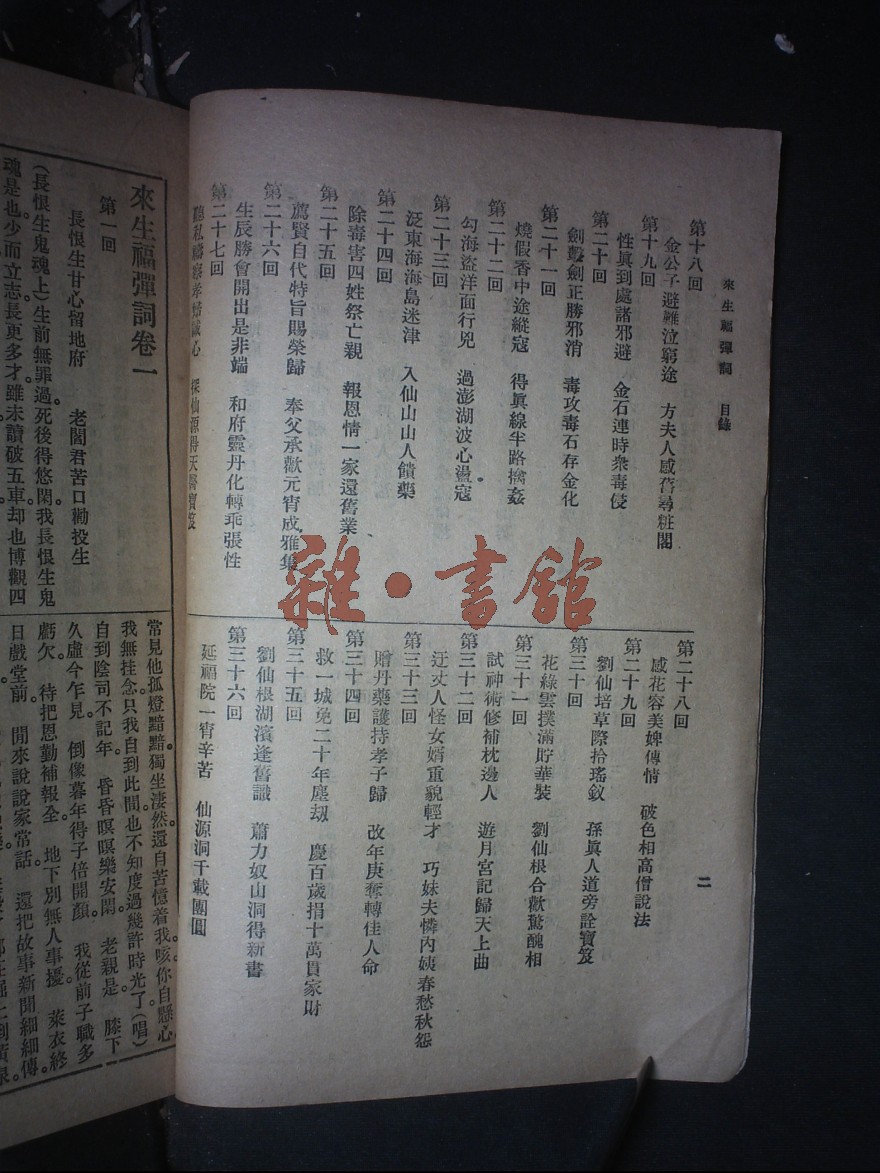 來生福彈詞　目錄
第十八回
金公子避難泣窮途　方夫人感舊尋粧閣
第十九回
性眞到處諸邪避　金石連時衆毒侵
第二十回
劍擊劍正勝邪消　毒攻毒石存金化
第二十一回
燒假香中途縱寇　得眞線半路擒姦
第二十二回
勾海盜洋面行兇　過澎湖波心盪寇
第二十三回
泛東海海島迷津　入仙山山人饋藥
第二十四回
除毒害四姓祭亡親　報恩情一家還舊業
第二十五回
薦賢自代特旨賜榮歸　奉父承歡元宵成雅集
第二十六回
生辰勝會開出是非端　和府靈丹化轉乖張性
第二十七回
聽私禱察孝悟誠心　探仙源得天醫寶笈
二
第二十八回
感花容美婢傳情　破色相高僧說法
第二十九回
劉仙培草際拾瑤釵　孫眞人道旁詮寶笈
第三十回
花綠雲撲滿貯華裝　劉仙根合歡驚醜相
第三十一回
試神術修補枕邊人　遊月宮記歸天上曲
第三十二回
迂丈人怪女婿重貌輕才　巧妹夫憐內姨春愁秋怨
第三十三回
贈丹藥護持孝子歸　改年庚奪轉佳人命
第三十四回
救一城免二十年塵劫　慶百歲捐十萬貫家財
第三十五回
劉仙根湖濱逢舊識　蕭力奴山洞得新書
第三十六回
延福院一宵辛苦　仙源洞千載團圓
雜·書館
來生福彈詞卷一
第一回
長恨生甘心留地府　老閻君苦口勸投生
(長恨生鬼魂上)生前無罪過死後得悠閑我長恨生鬼
魂是也少而立志長更多才雖未讀破五車却也博觀四
常見他孤燈黯黯獨坐淒然還自苦憶着我咳你自懸心
我無挂念只我自到此間也不知度過幾許時光了(唱)
自到陰司不記年　昏昏暝暝樂安閑　老親是　膝下
久虛今乍見　倒像暮年得子倍開顏　我從前子職多
虧欠　待把恩勤補報全　地下別無人事擾　萊衣終
日戲堂前　閒來說說家常話　還把故事新聞細細傳